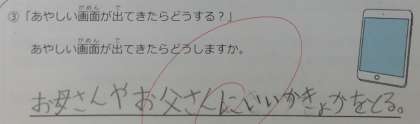 ③「あやしい画面が出てきたらどうする？」
あやしい画面が出てきたらどうしますか。
お母さんやお父さんにいいかきょかをとる。